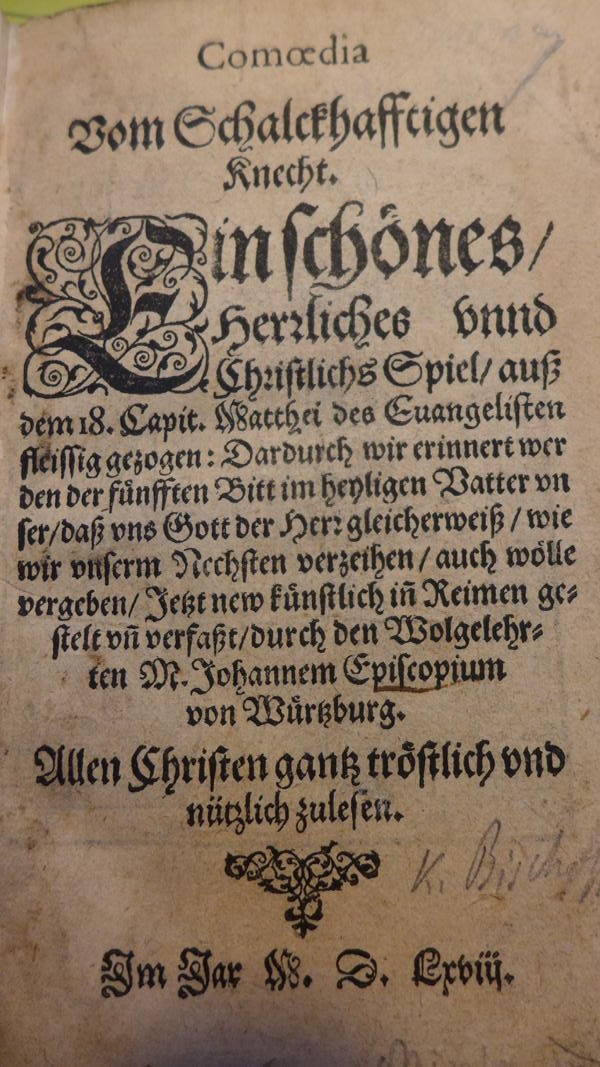 Comœdia
Vom Schalckhafftigen
Knecht.
Ein schönes/
Herrliches vnnd
Christlichs Spiel/ auß
dem 18. Capit. Matthei des Euangelisten
fleissig gezogen: Dardurch wir erinnert wer
den der fünfften Bitt im heyligen Vatter vn
ser/daß vns Gott der Herr gleicherweiß/ wie
wir vnserm Nechsten verzeihen/ auch wölle
vergeben/ Jetzt new künstlich iñ Reimen ge-
stelt vñ verfaßt/durch den Wolgelehr-
ten M. Johannem Episcopium
von Würtzburg.
Allen Christen gantz tröstlich vnd
nützlich zulesen.
K. Bischoff
Im Jar M. D. Lxviij.